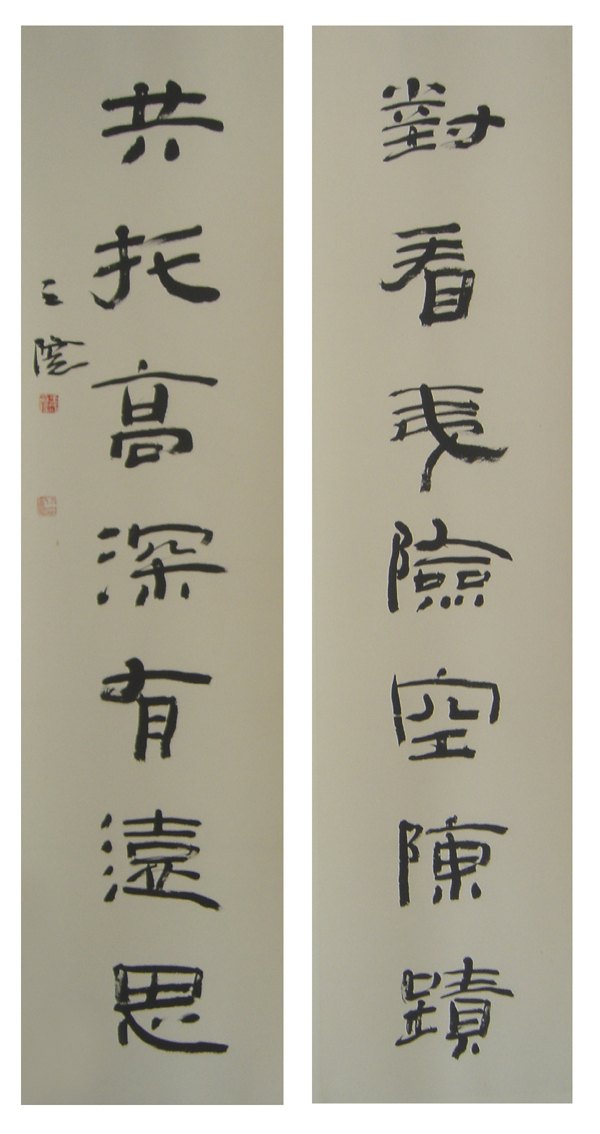 對看夷險空陳蹟
共托高深有遠思